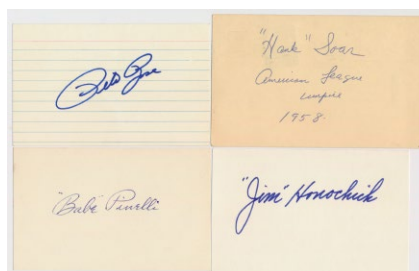 "Hank" Soar
American League
Umpire
1958
"Babe" Pinelli
"Jim" Honochick